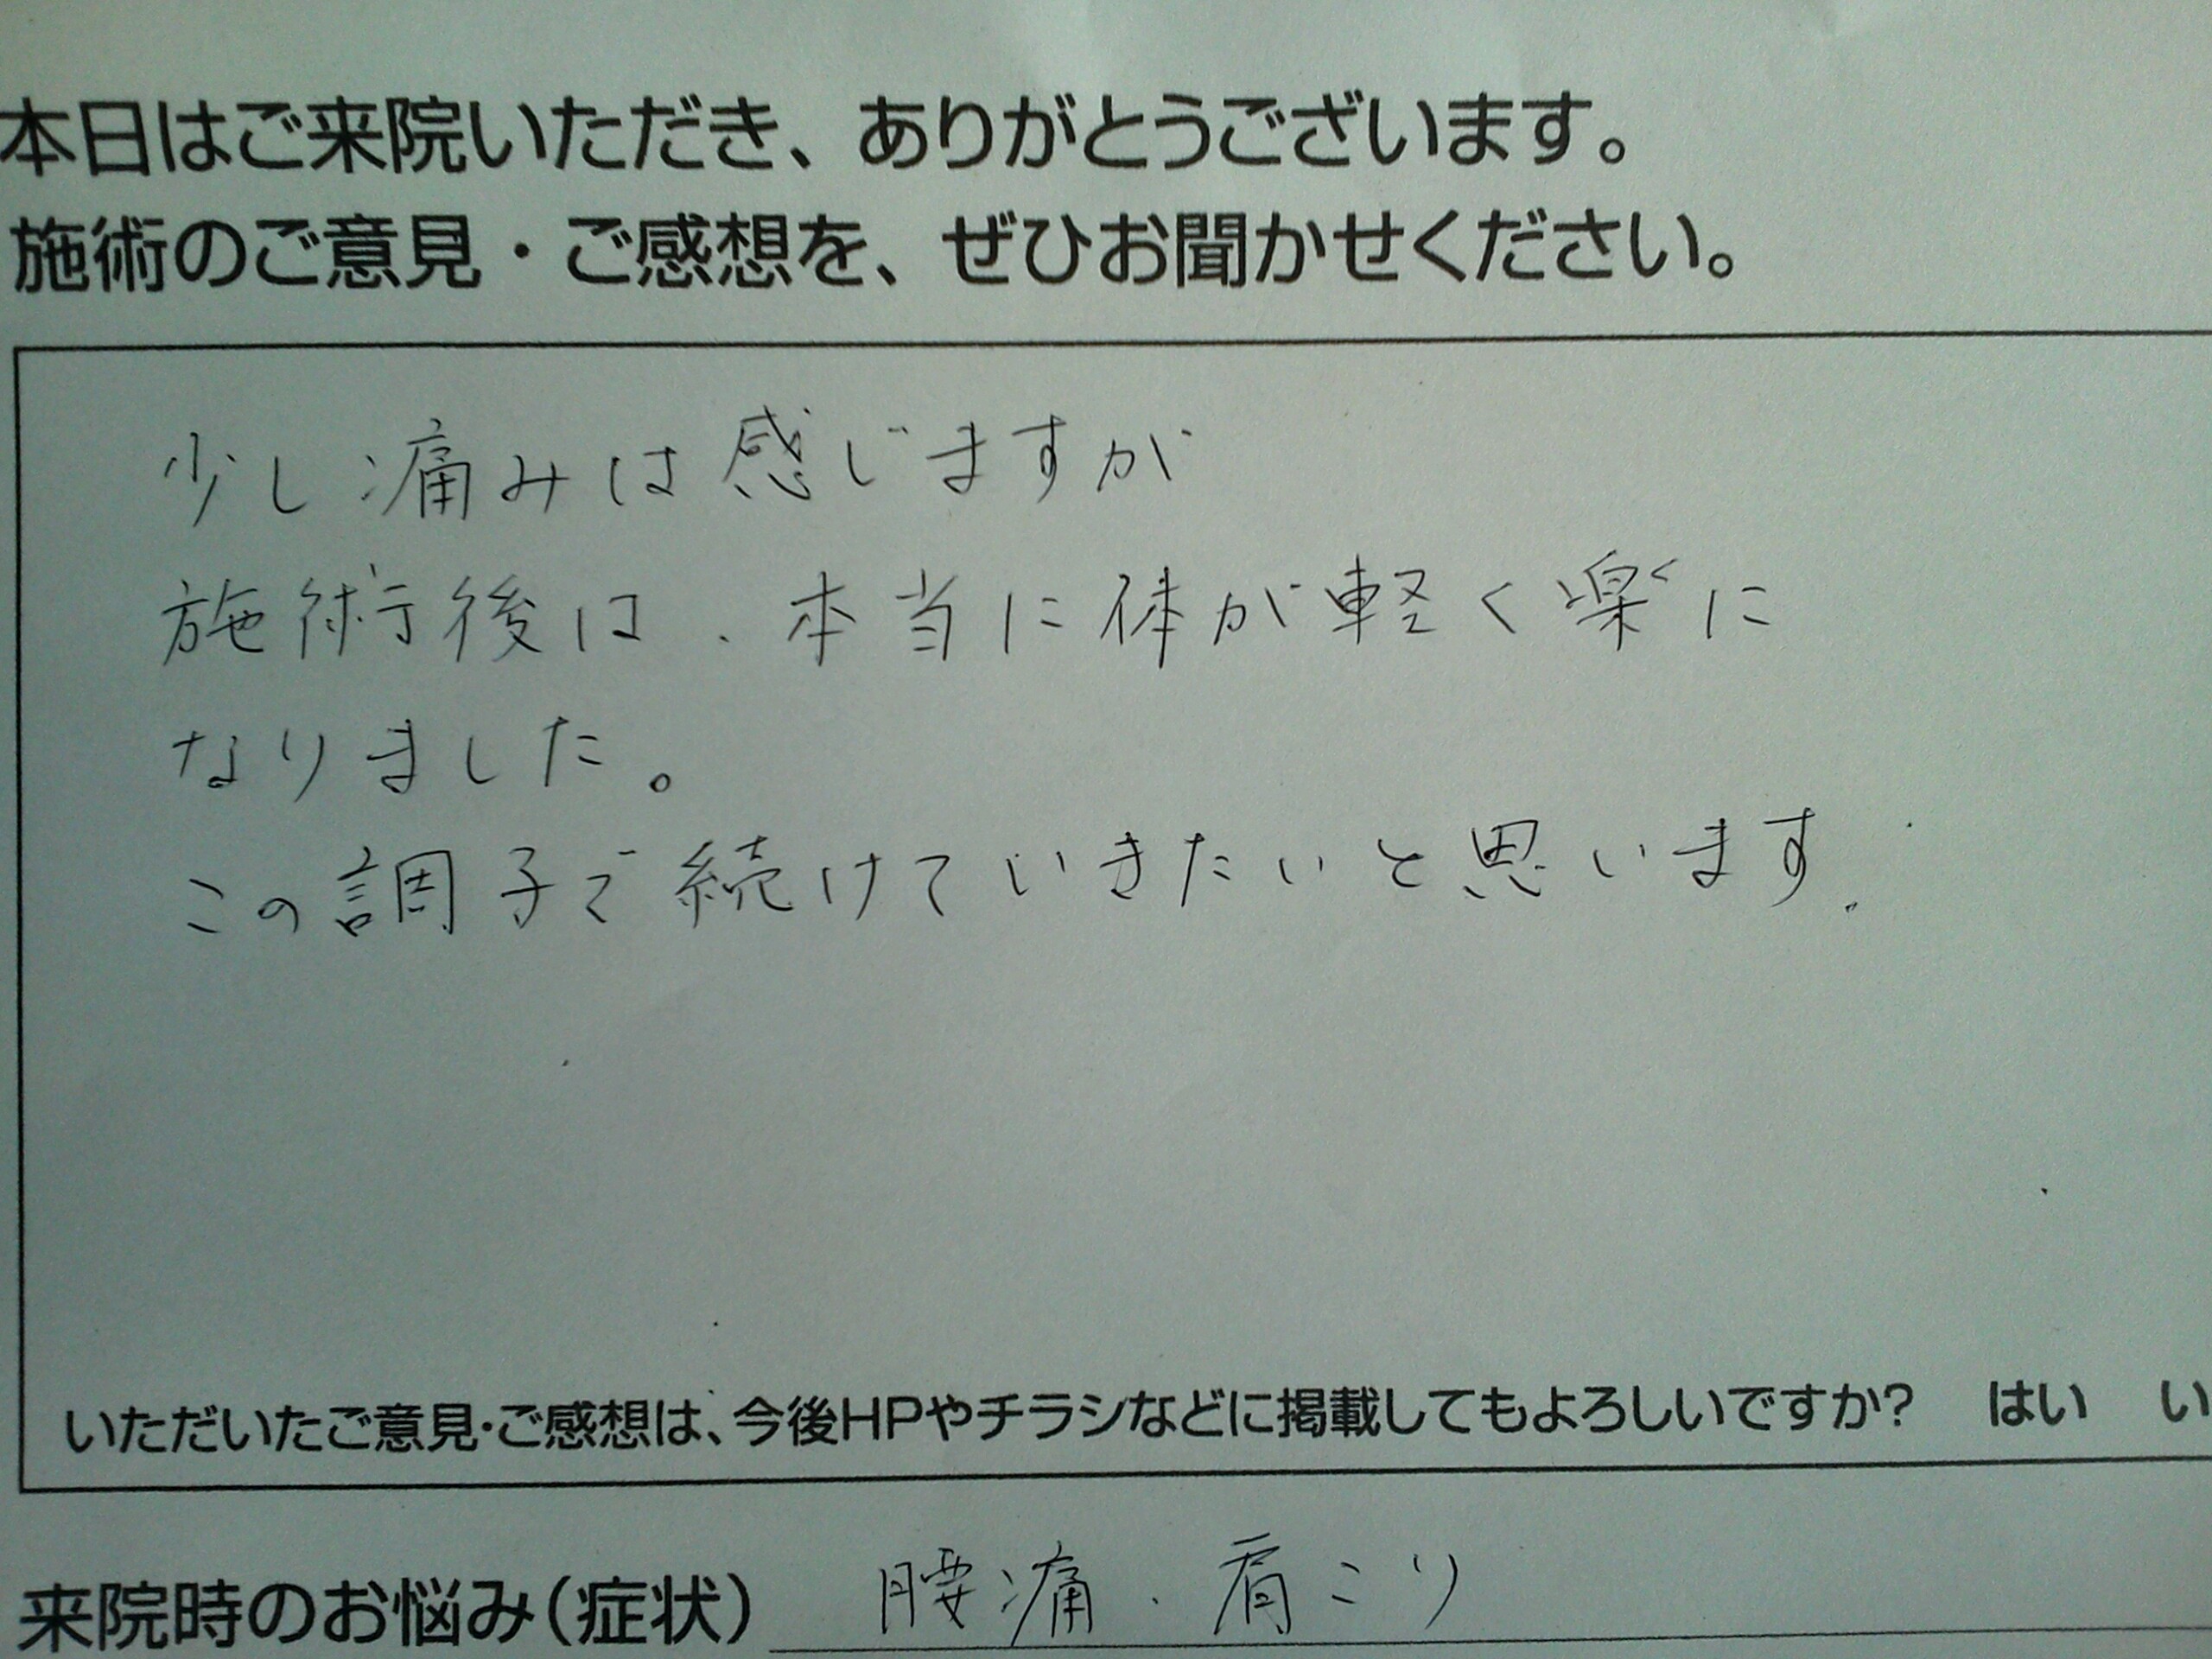 本日はご来院いただき、ありがとうございます。
施術のご意見・ご感想を、ぜひお聞かせください。
少し痛みは感じますが
施術後は、本当に体が軽く楽に
なりました。
この調子で続けていきたいと思います.
いただいたご意見・ご感想は、今後HPやチラシなどに掲載してもよろしいですか? はい い
来院時のお悩み(症状) 腰痛、肩こり